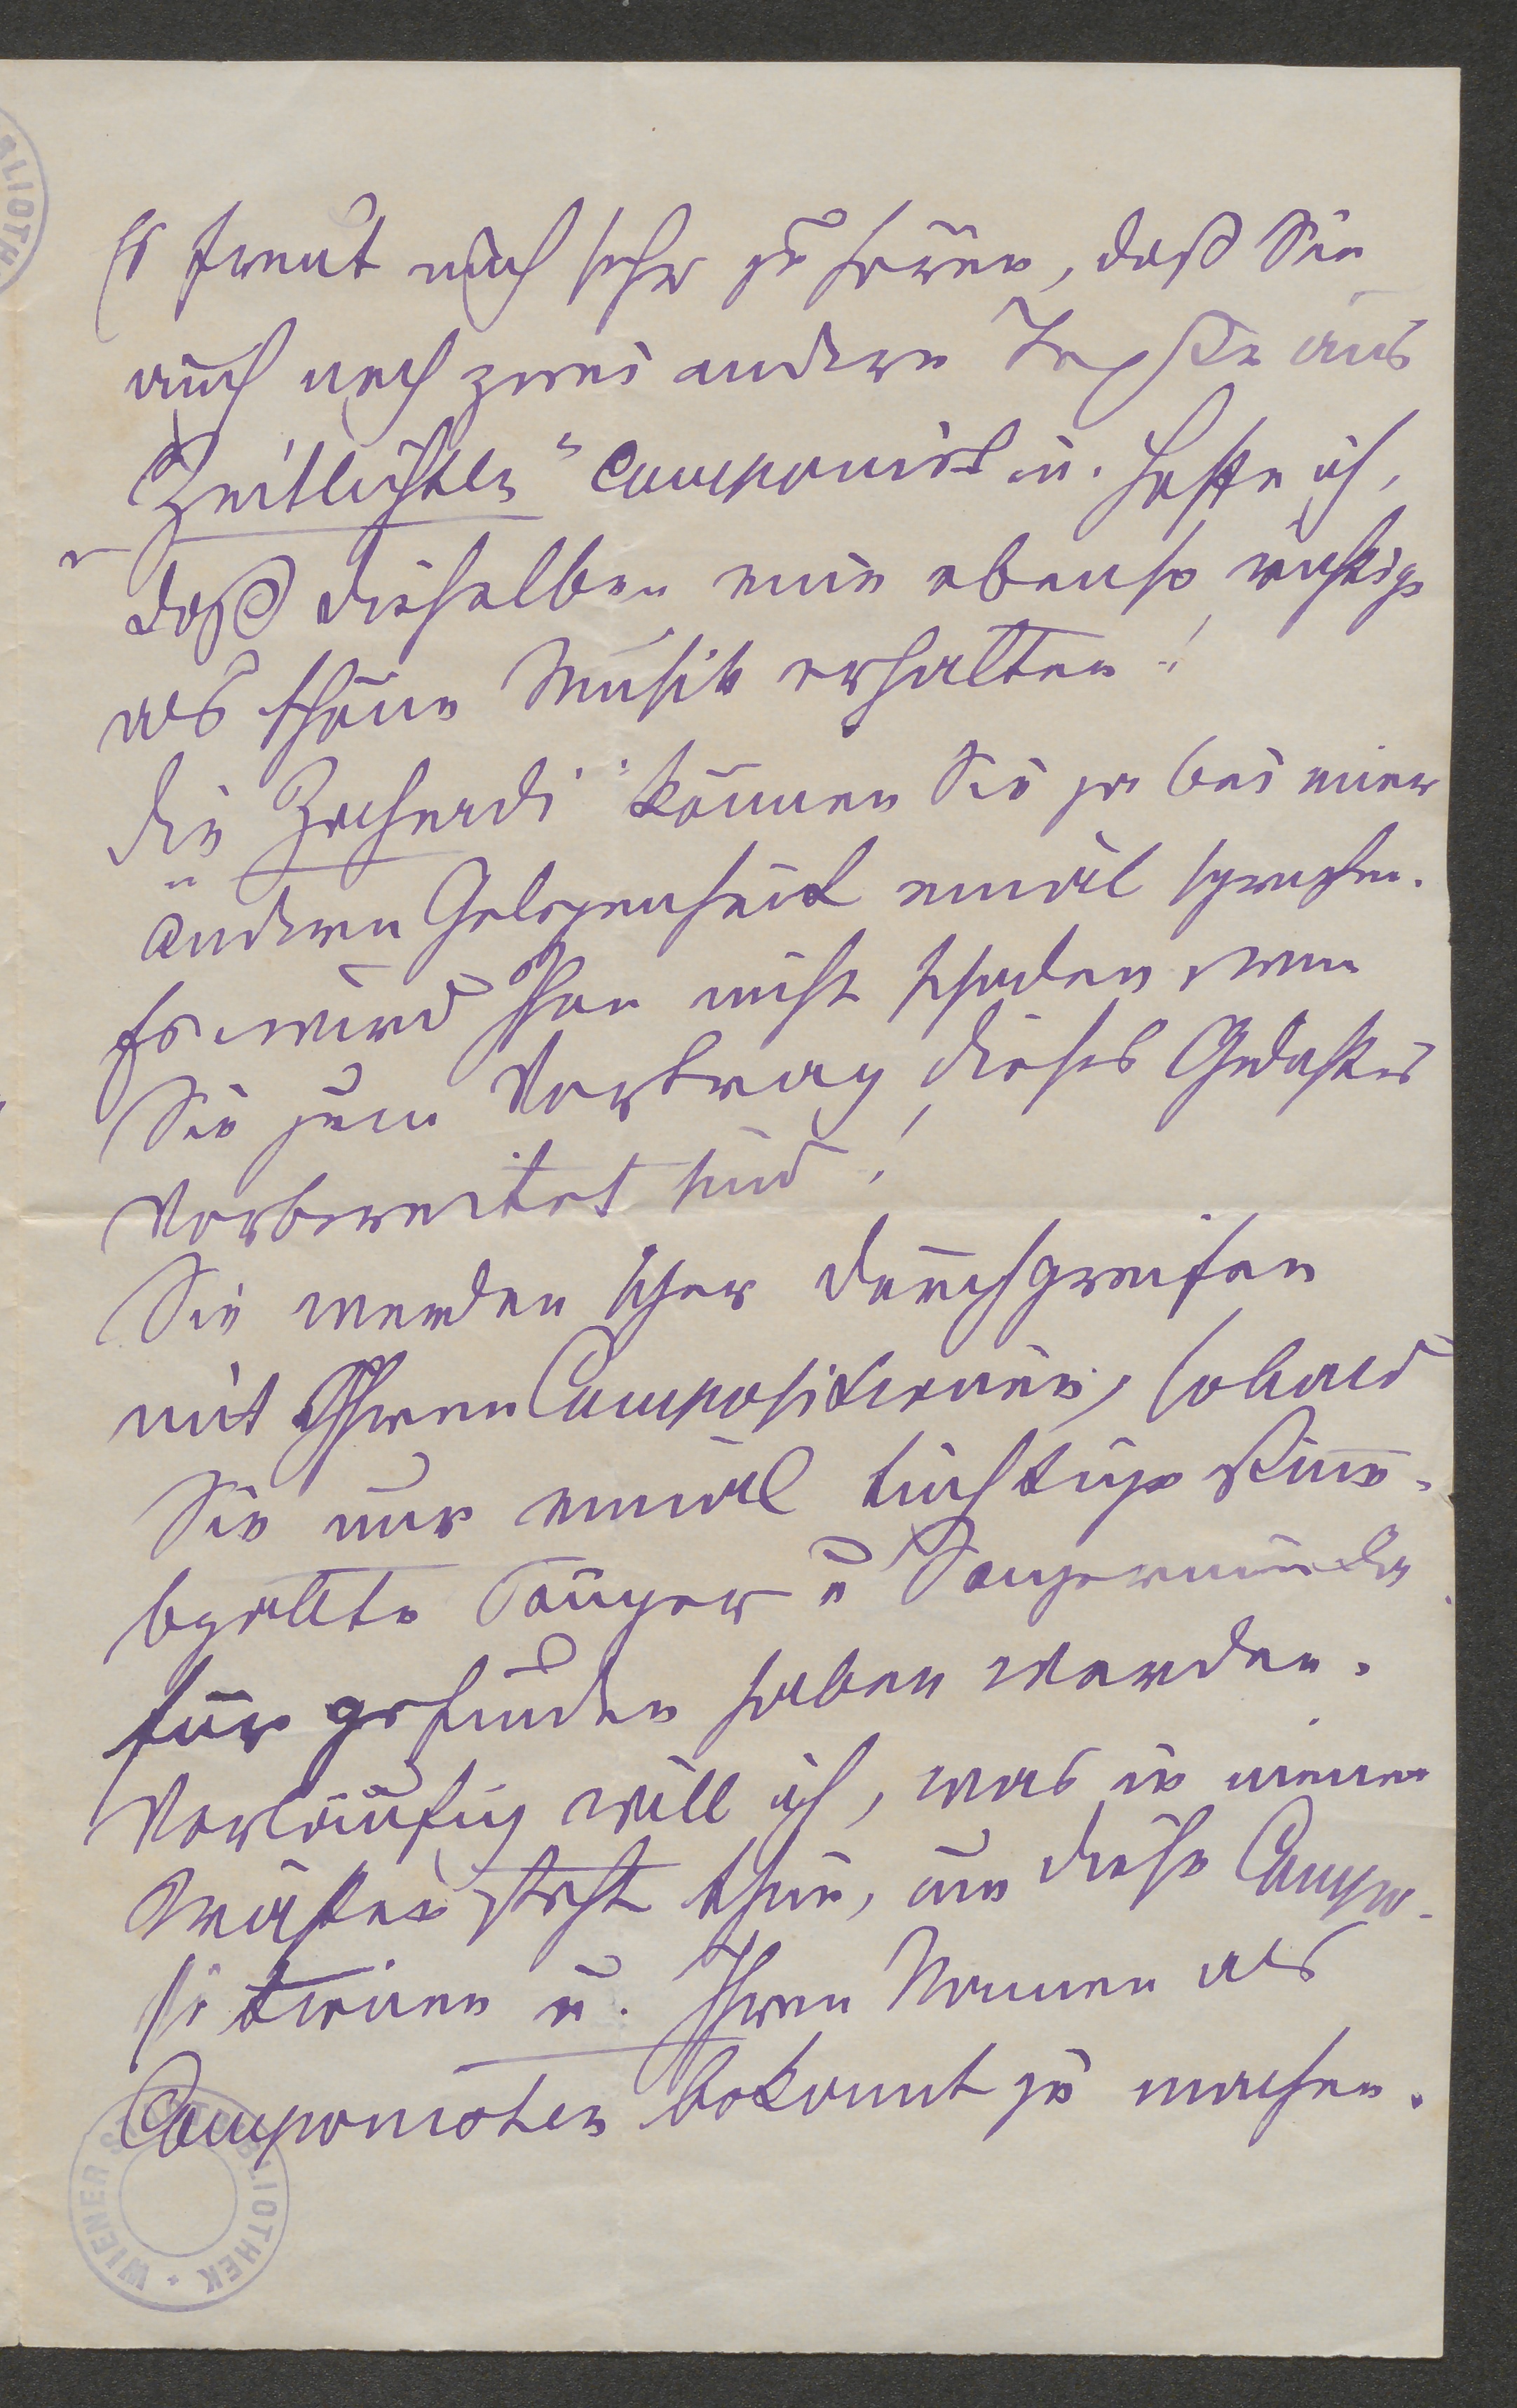 Es freut mich sehr zu hören, daß Sie
auch noch zwei andere Texte aus
„Zeitlichtln“ componirt u. hoffe ich,
daß dieselben eine ebenso richtige
als schöne Musik erhalten!
Die „Zacherdi“ können Sie ja bei einer
anderen Gelegenheit einmal sprechen.
Es wird Ihnen nicht schaden, wenn
Sie zum Vortrag dieses Gedichtes
vorbereitet sind!
Sie werden schon durchgreifen
mit Ihren Compositionen, sobald
Sie nur einmal tüchtige stimm-
begabte Sänger u Sängerinnen da
für gefunden haben werden.
Vorläufig will ich, was in meinen
Kräften steht thun, um diese Compo-
sitionen u. Ihren Namen als
Componisten bekannt zu machen.
WIENER STADTBIBLIOTHEK